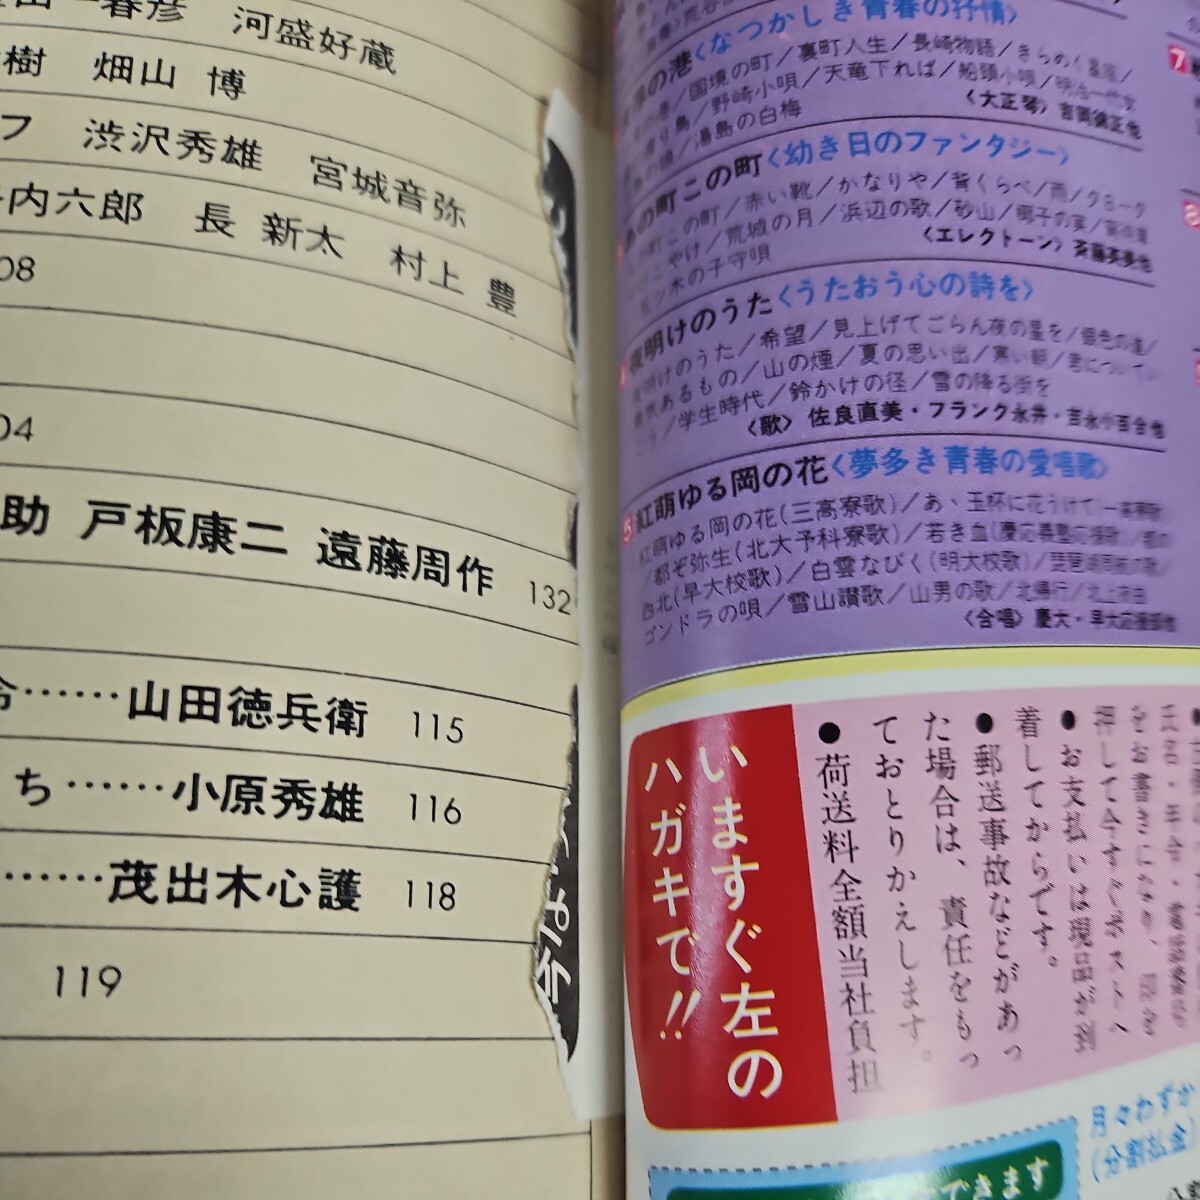 一春彦 河盛好蔵
樹 畑山 博
フ 渋沢秀雄 宮城音弥
内六郎 長 新太 村上 豊
08
04
助 戸板康二 遠藤周作 132
……山田徳兵衛 115
ち……小原秀雄 116
……茂出木心護 118
119
の港〈なつかしき青春の抒情〉
国境の町／裏町人生／長崎物語／きらめく星座／
り鳥／野崎小唄／天竜下れば／船頭小唄／明治一代女
湯島の白梅
〈大正琴〉吉岡錦正他
の町この町〈幼き日のファンタジー〉
町この町／赤い靴／かなりや／背くらべ／雨／
こやけ／荒城の月／浜辺の歌／砂山／椰子の実／
ツ木の子守唄
〈エレクトーン〉斉藤英美他
夜明けのうた〈うたおう心の詩を〉
夜明けのうた／希望／見上げてごらん夜の星を／銀色の道／
勇気あるもの／山の煙／夏の思い出／寒い朝／君について
こう／学生時代／鈴かけの径／雪の降る街を
〈歌〉佐良直美・フランク永井・吉永小百合他
5 紅萌ゆる岡の花〈夢多き青春の愛唱歌〉
紅萌ゆる岡の花(三高寮歌)／あゝ玉杯に花うけて(一高寮歌
／都ぞ弥生(北大予科寮歌)／若き血(慶応義塾応援歌)／都の
西北(早大校歌)／白雲なびく(明大校歌)／琵琶湖周航の歌／
ゴンドラの唄／雪山讃歌／山男の歌／北帰行／北上夜曲
〈合唱〉慶大・早大応援部他
7
氏名・年令・電話番号
をお書きになり、印を
押して今すぐポストへ
●お支払いは現品が到
着してからです。
●郵送事故などがあっ
た場合は、責任をもっ
ておとりかえします。
●荷送料全額当社負担
いますぐ左の
ハガキで!!
月々わずか
(分割払金)
できます